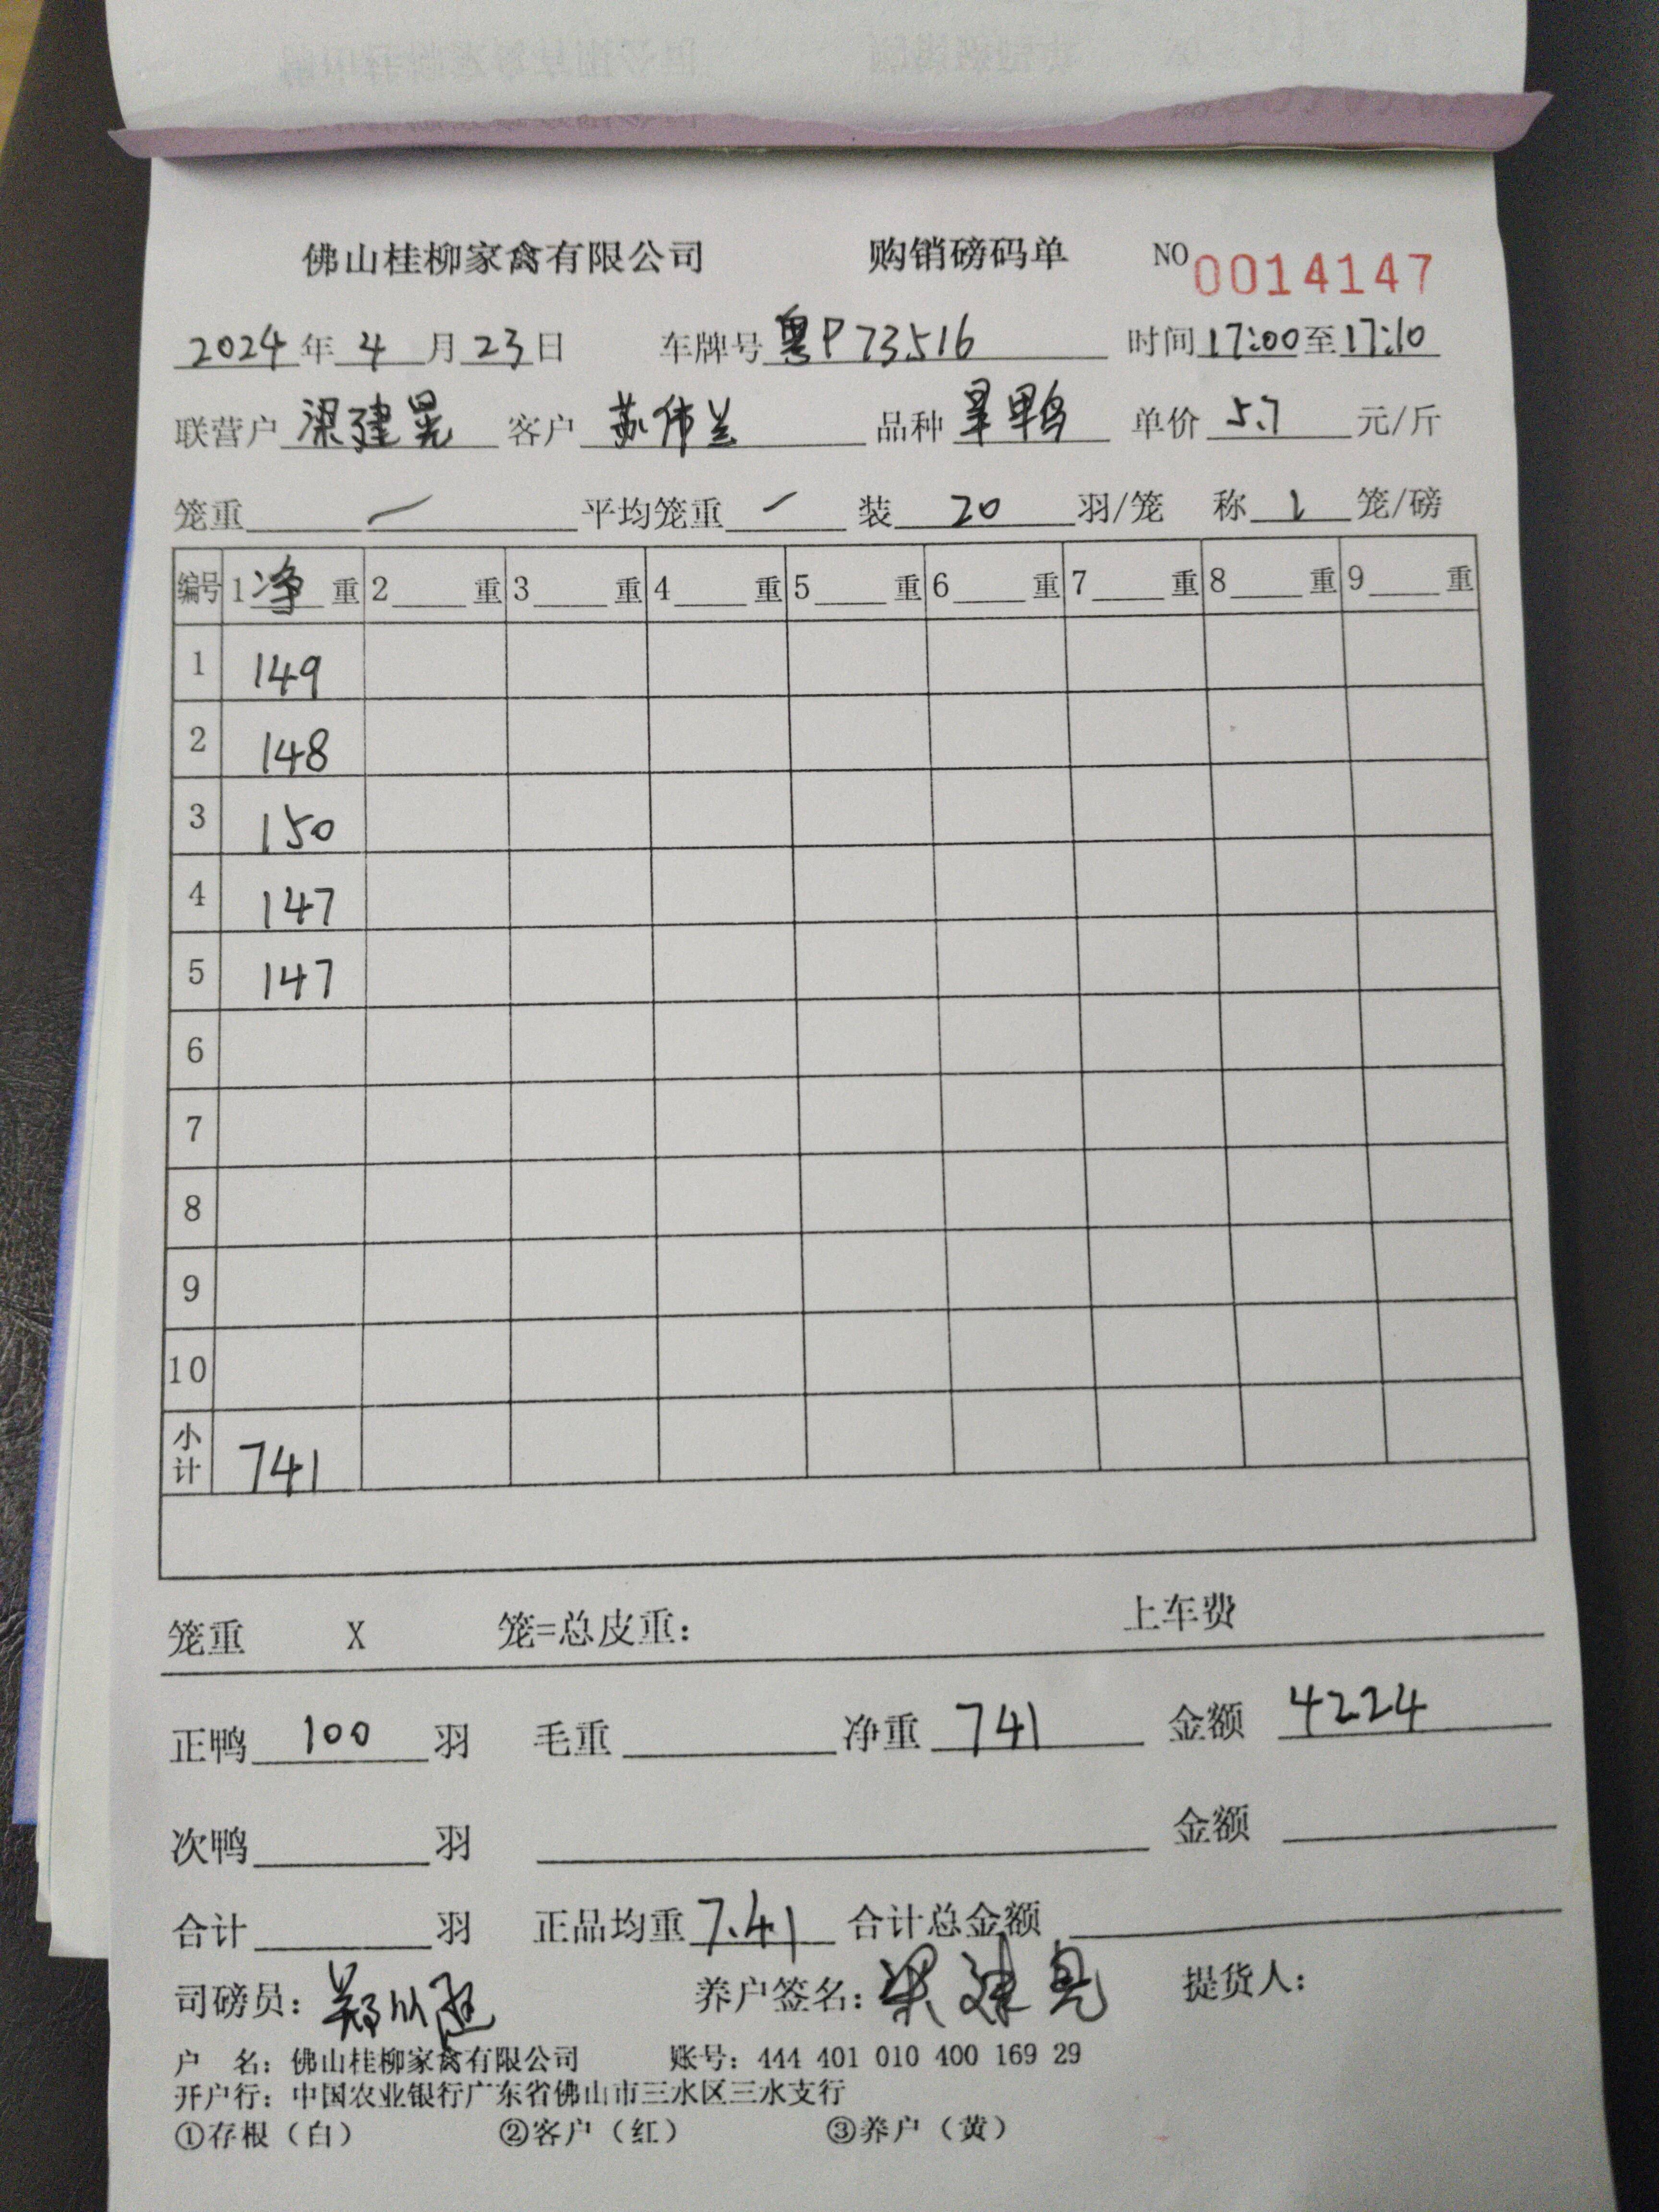 佛山桂柳家禽有限公司 购销磅码单 NO 0014147
2024年4月23日 车牌号粤P73516 时间17:00至17:10
联营户 梁建晃 客户 苏伟兰 品种 旱鸭 单价 5.7 元/斤
笼重 一 平均笼重 一 装 20 羽/笼 称 1 笼/磅
编号 1净重 2 重 3 重 4 重 5 重 6 重 7 重 8 重 9 重
1 149
2 148
3 150
4 147
5 147
6
7
8
9
10
小计 741
笼重 X 笼=总皮重: 上车费
正鸭 100 羽 毛重 净重 741 金额 4224
次鸭 羽 金额
合计 羽 正品均重 7.41 合计总金额
司磅员: 养户签名: 梁建晃 提货人:
户 名: 佛山桂柳家禽有限公司 账号: 444 401 010 400 169 29
开户行: 中国农业银行广东省佛山市三水区三水支行
①存根(白) ②客户(红) ③养户(黄)